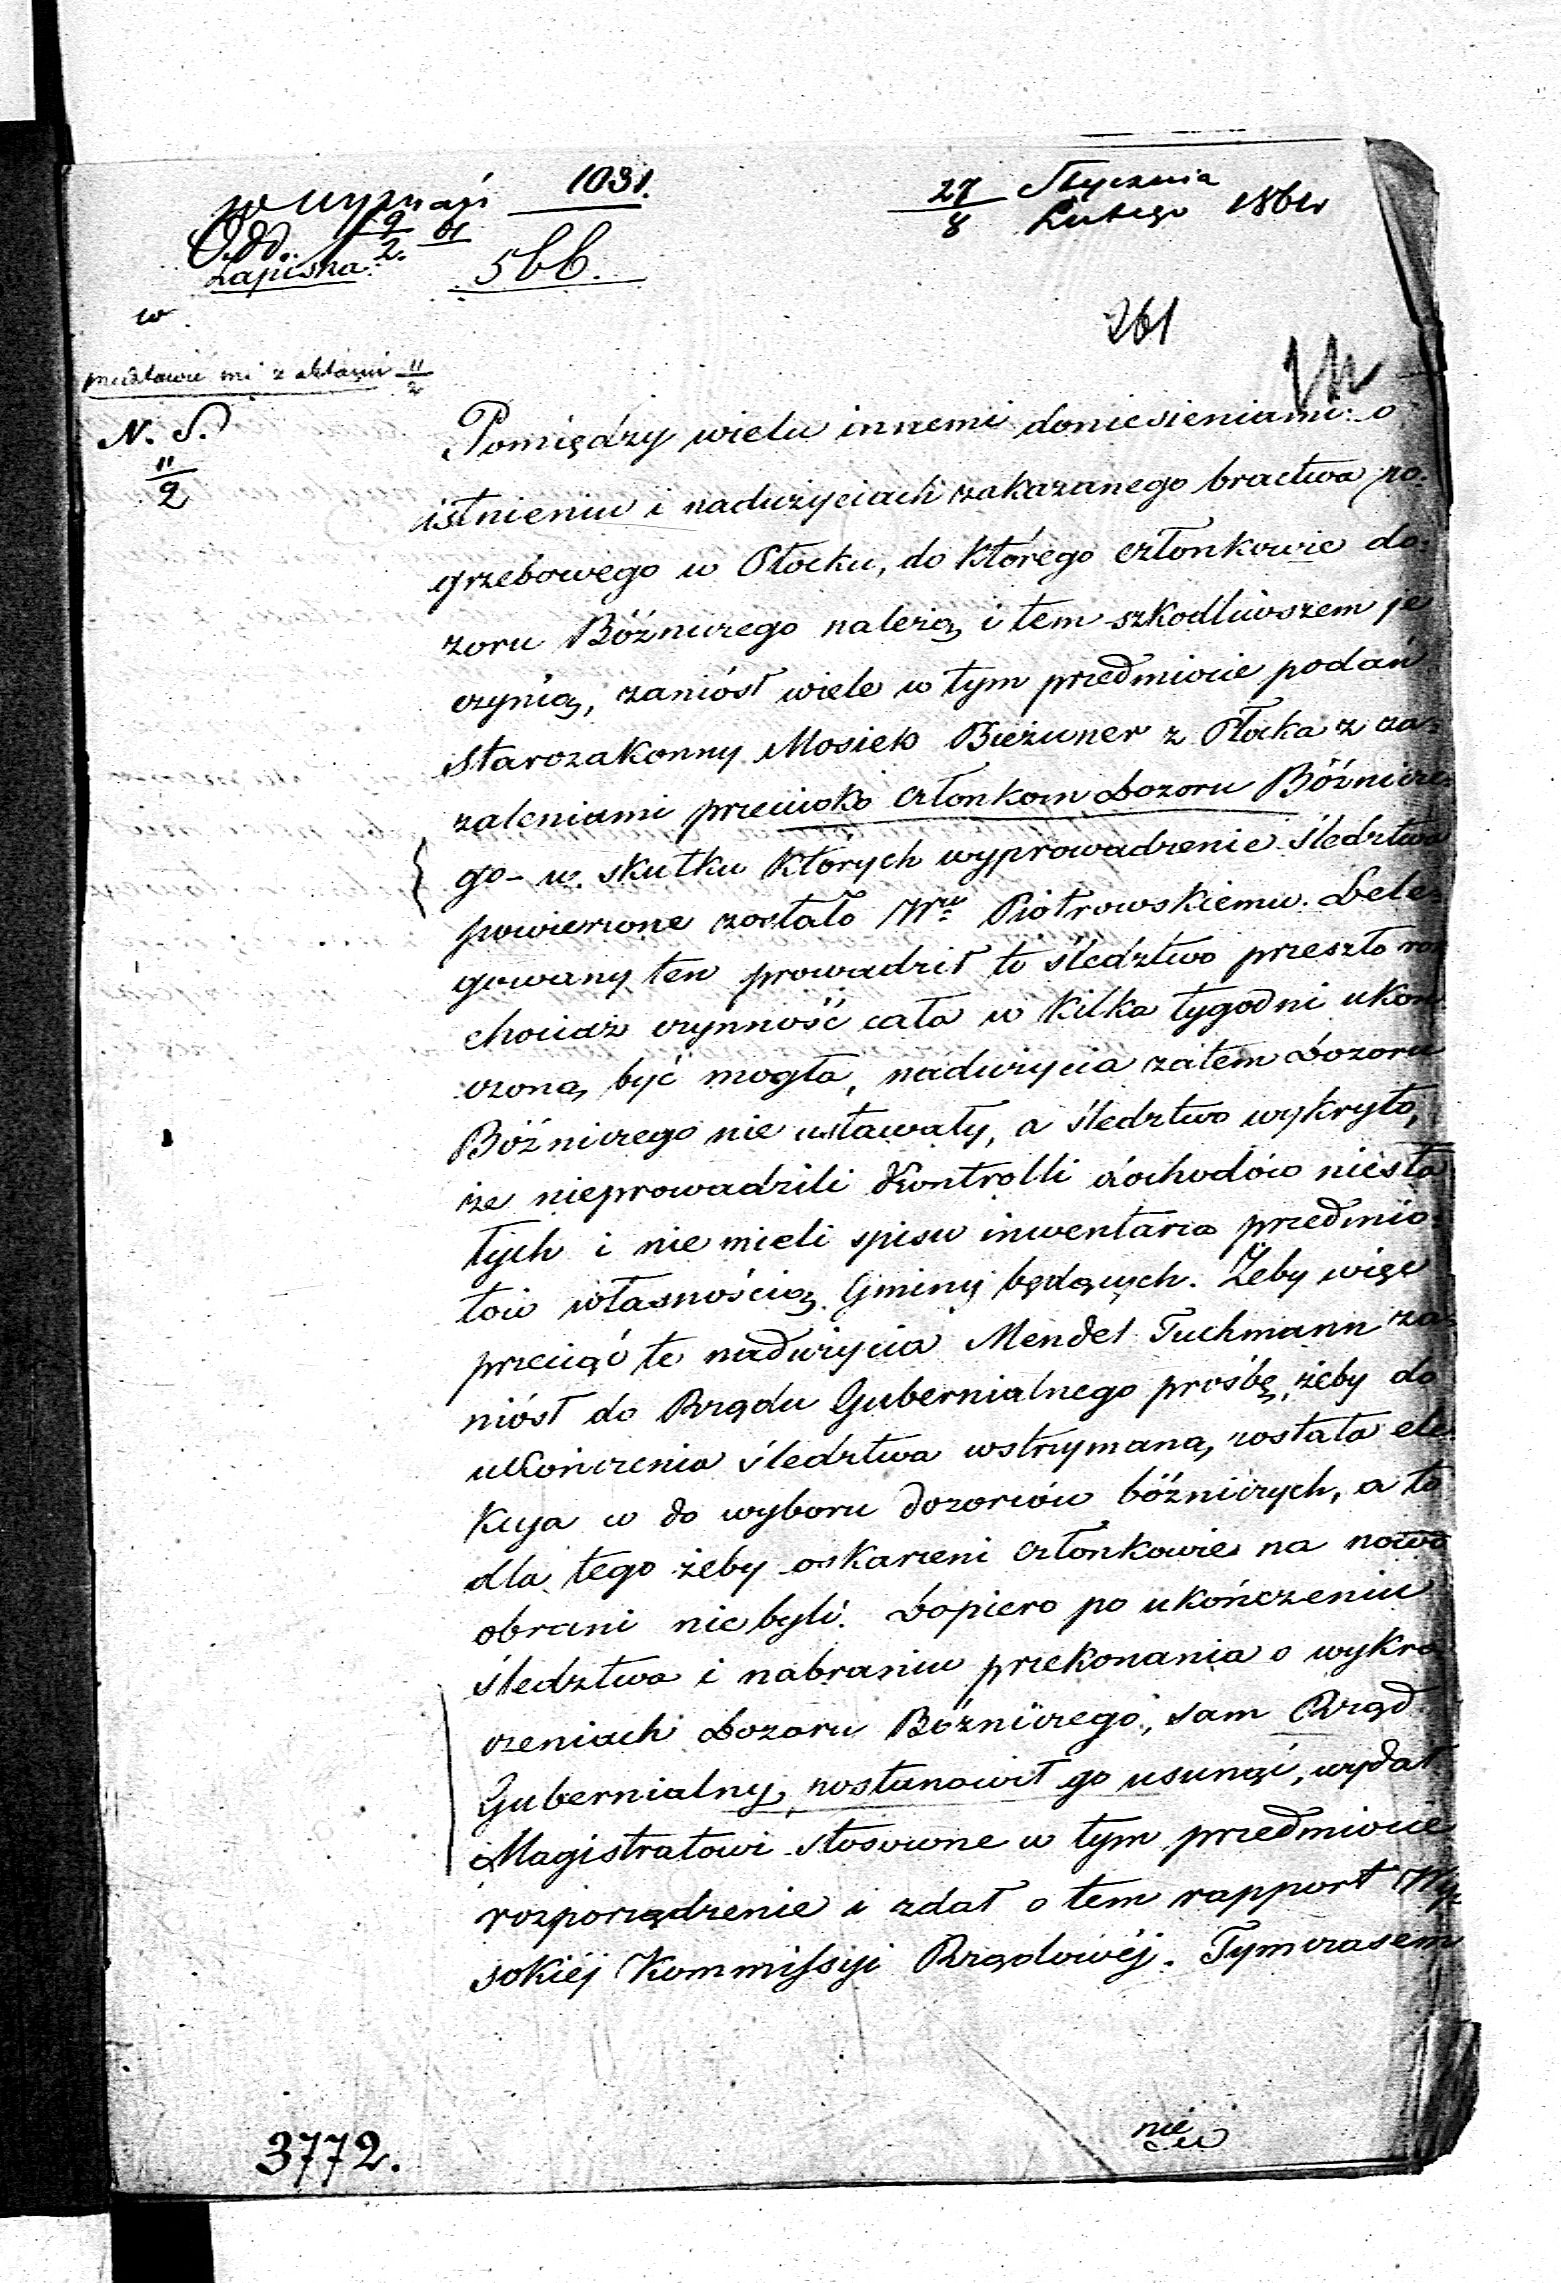 1031.
27 Stycznia
8 Lutego 1861 r
w
Odd.
9
2. 61
Zapiska
566.
w
261
przedstawić mi z aktami 11
2
N. S.
11
2
Pomiędzy wielu innemi doniesieniami o
istnieniu i nadużyciach zakazanego bractwa po=
grzebowego w Płocku, do którego członkowie do=
zoru Bóźniczego należą i tem szkodliwszem je
czynią, zaniósł wiele w tym przedmiocie podań
starozakonny Mosiek Bieżuner z Płocka z za=
żaleniami przeciwko członkom Dozoru Bóźnicze=
go – w skutku których wyprowadzenie śledztwa
powierzone zostało Wmu Piotrowskiemu. Dele=
gowany ten prowadził to śledztwo przeszło rok
chociaż czynność cała w kilka tygodni ukoń
czoną być mogła, nadużycia zatem Dozoru
Bóźniczego nie ustawały, a śledztwo wykryło,
że nieprowadzili Kontrolli dochodów niesta
łych i nie mieli spisu inwentarza przedmio=
tów własnością Gminy będących. Żeby więc
przeciąć te nadużycia Mendel Tuchmann za=
niósł do Rządu Gubernialnego prośbę, żeby do
ukończenia śledztwa wstrzymaną została ele=
kcya w do wyboru dozorców bóźniczych, a to
dla tego żeby oskarżeni członkowie na nowo
obrani nie byli. Dopiero po ukończeniu
śledztwa i nabraniu przekonania o wykro
czeniach Dozoru Bóźniczego, sam Rząd
Gubernialny postanowił go usunąć, wydał
Magistratowi stosowne w tym przedmiocie
rozporządzenie i zdał o tem rapport Wy=
sokiéj Kommissyi Rządowéj. Tymczasem
3772.